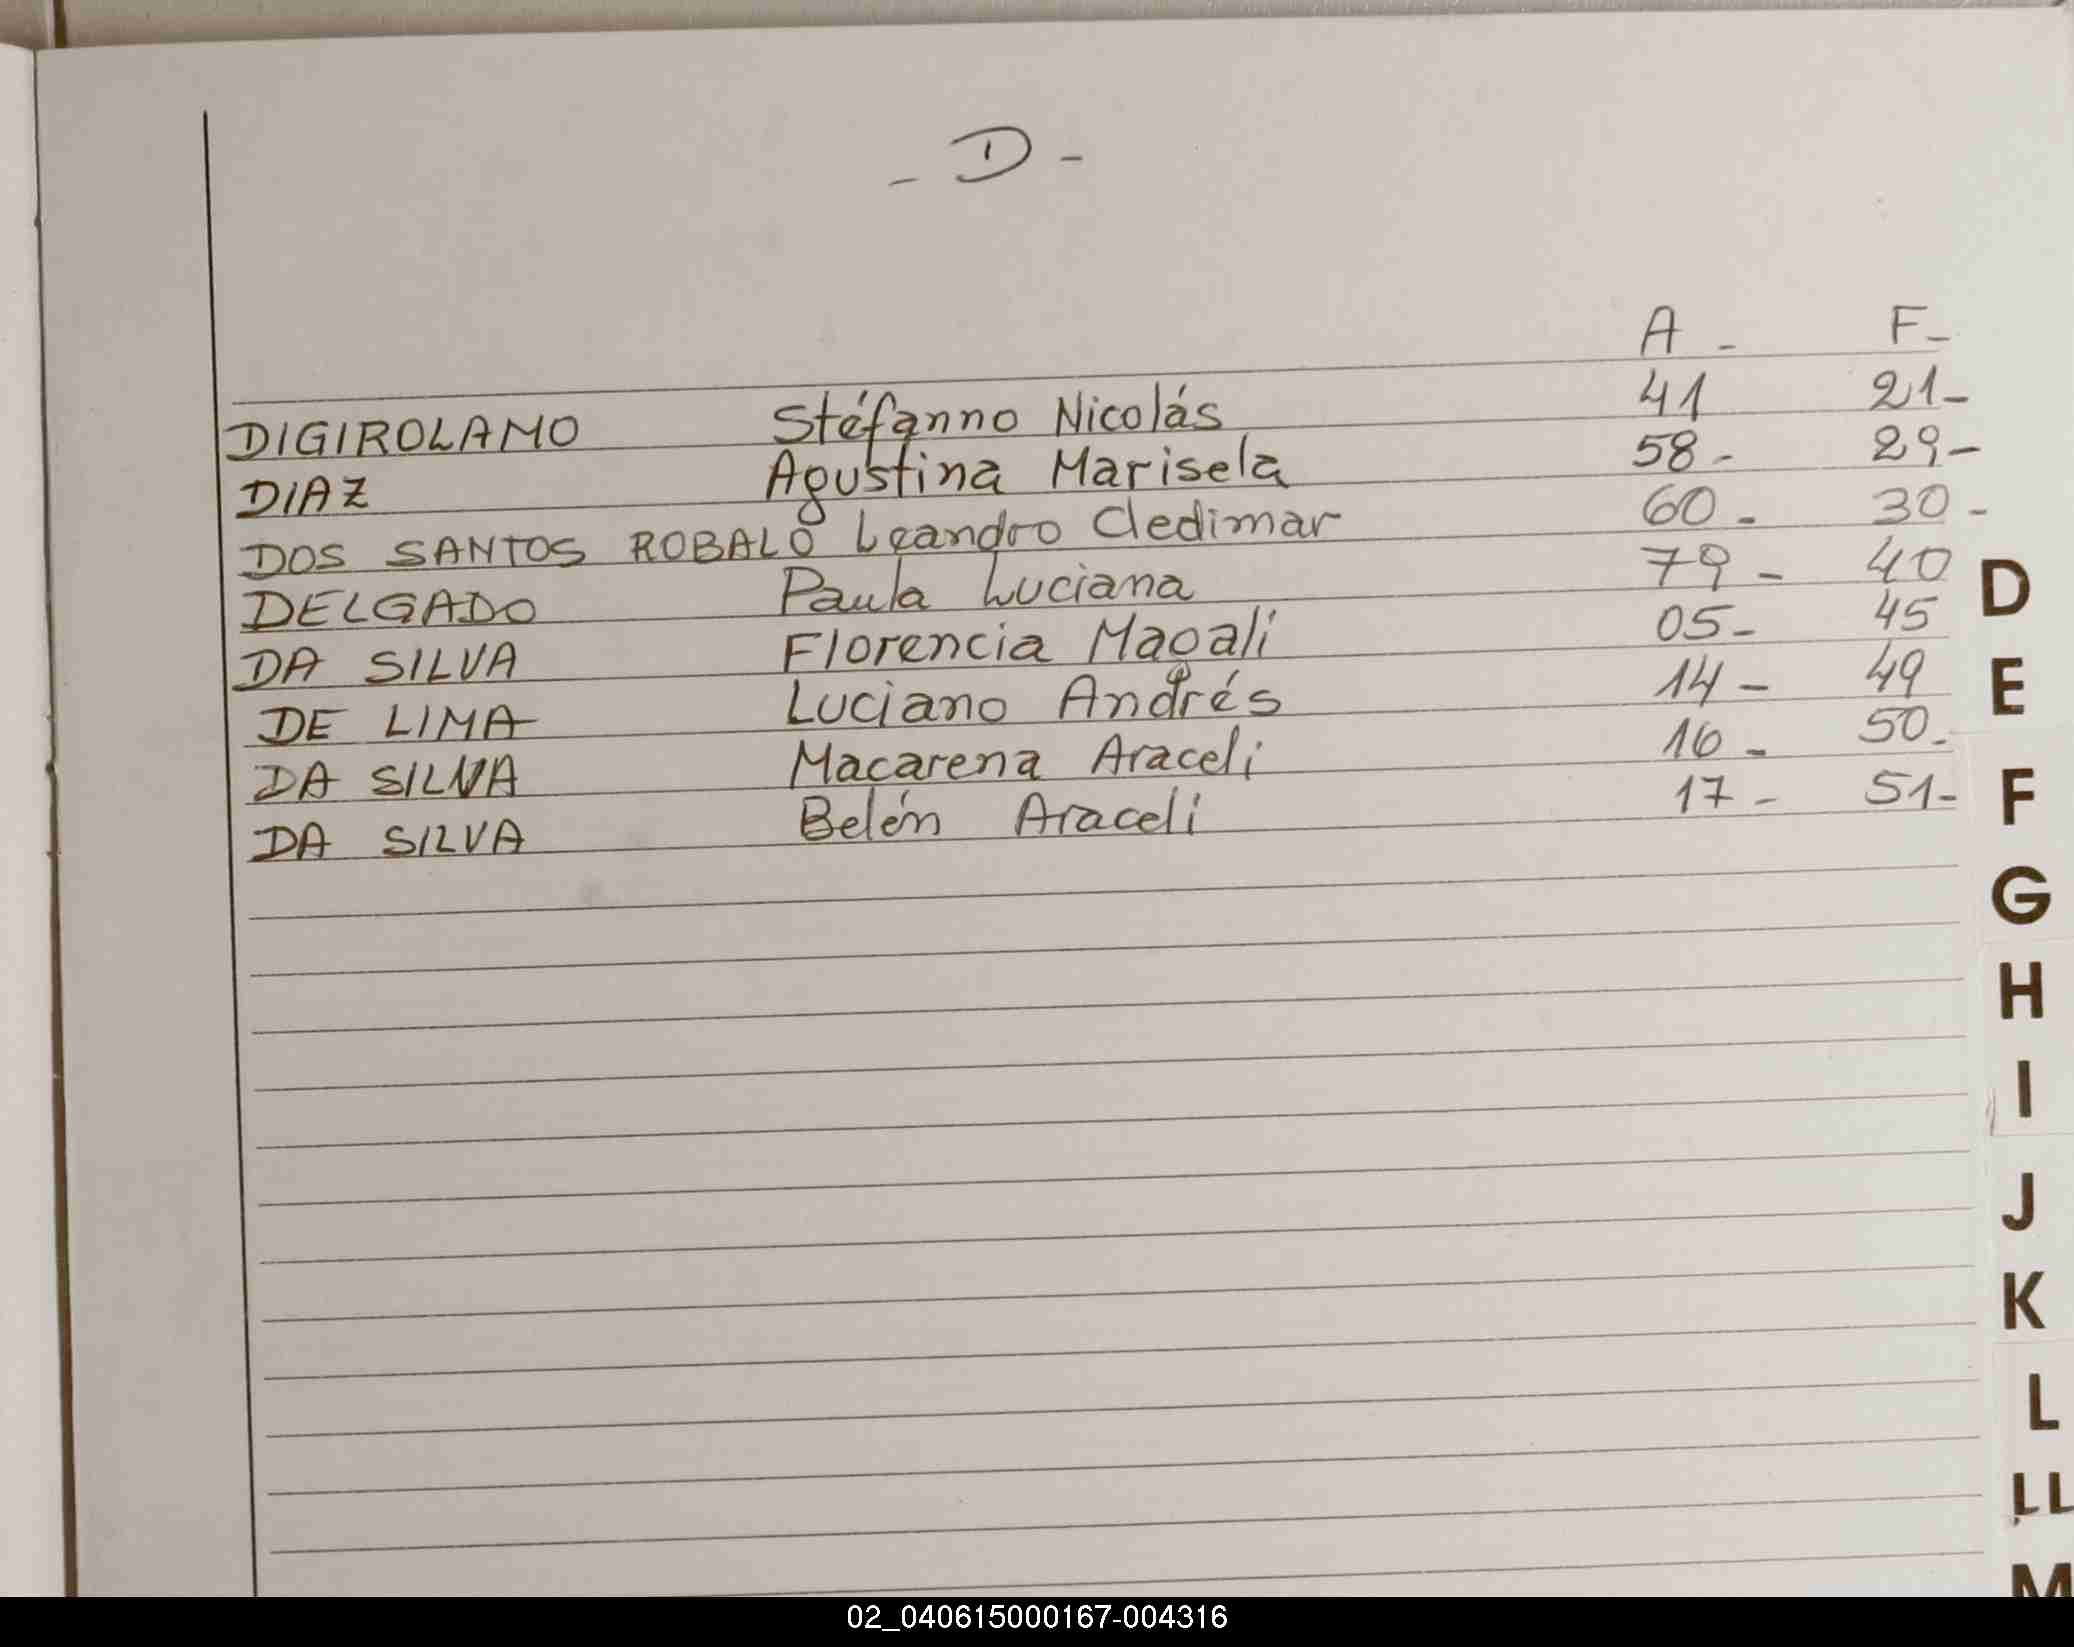 - D -
A - F-
DIGIROLAMO Stéfanno Nicolás 41 21-
DIAZ Agustina Marisela 58- 29-
DOS SANTOS ROBALO Leandro Cledimar 60- 30-
DELGADO Paula Luciana 79- 40
DA SILVA Florencia Magali 05- 45
DE LIMA Luciano Andrés 14- 49
DA SILVA Macarena Araceli 16- 50-
DA SILVA Belén Araceli 17- 51-
D
E
F
G
H
I
J
K
L
LL
M
02_040615000167-004316